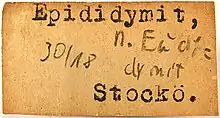 Epididymit,
30/18 n. Eudi-
dymit
Stockö.